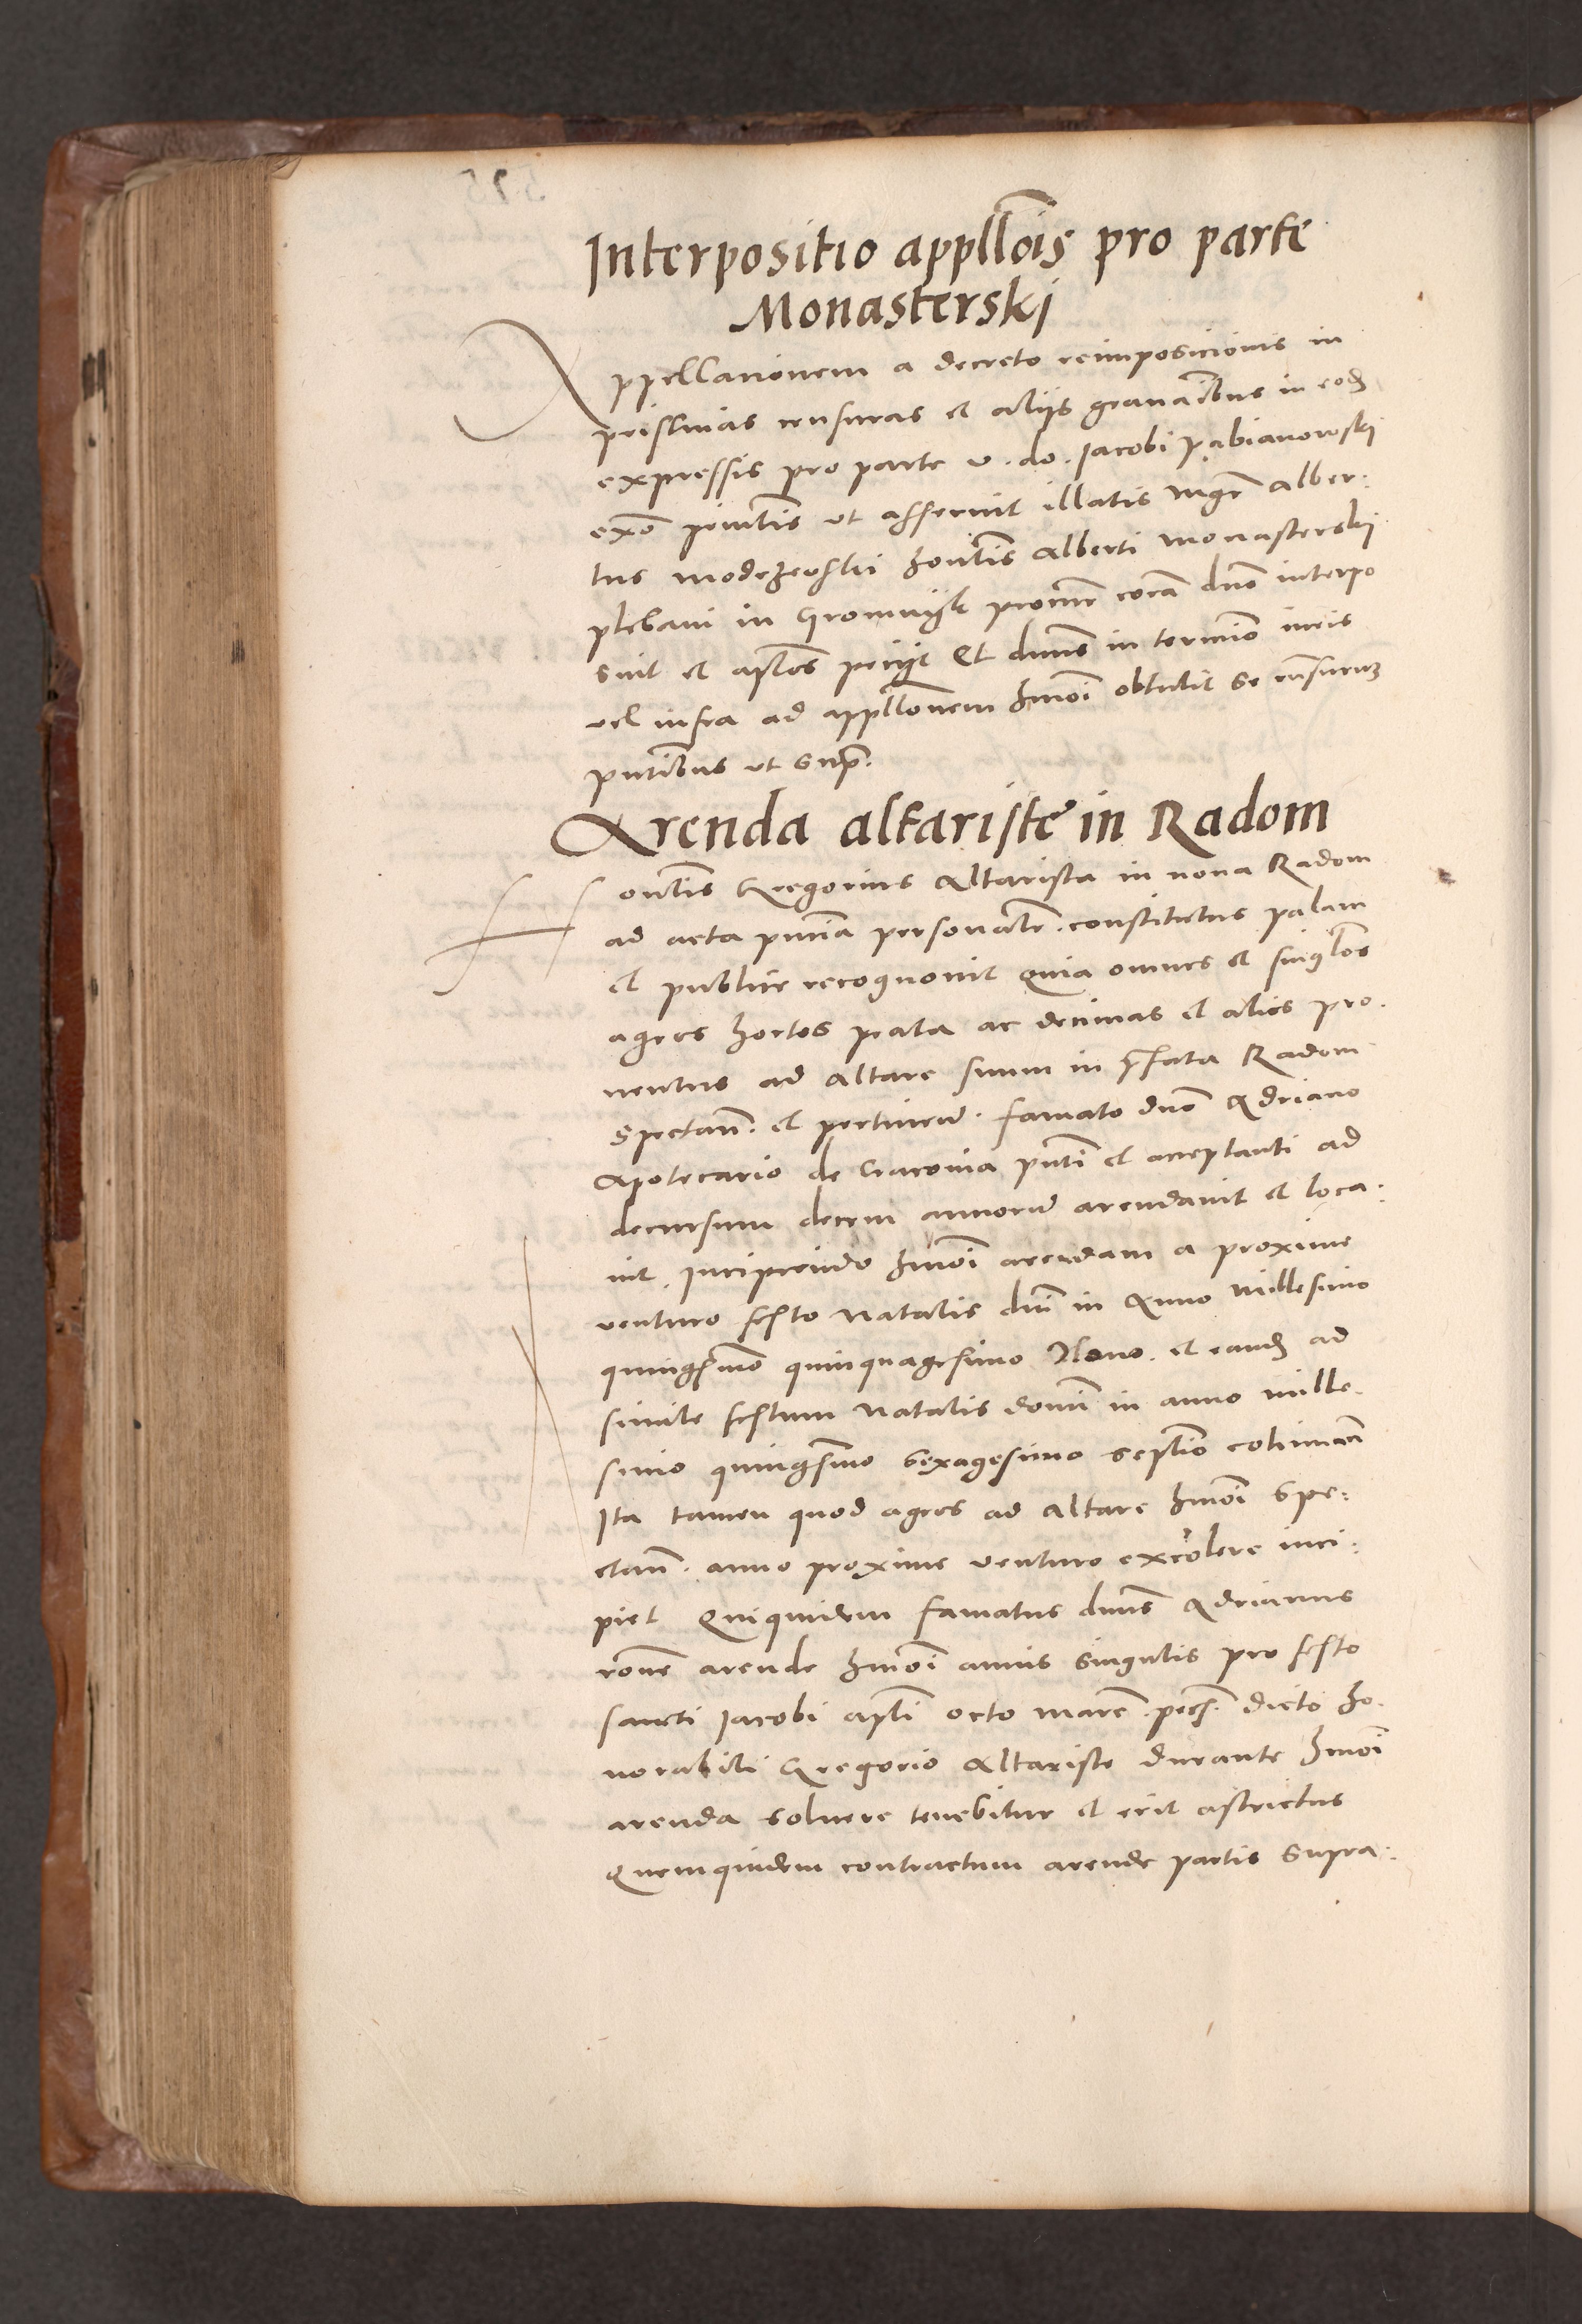 Interpositio appllois pro parte
Monasterski
Appellacionem a decreto reimposicionis in
pristinas censuras et aliis gravaībus in eod
expressis pro parte v. do. Jacobi Pabianowski
ut asseruit illatis mgr Alber:
tus Modrzewski hontis Alberti Monasterski
plebani in procur corā dno interpo
suit et aptos peciit Et dnus in termino iuris
vel infra ad appllonem hmoi obtulit se rnsurum
pntibus ut supr.
Arenda altariste in Radom
Hontis Gregorius Altarista in nova Radom
ad acta pntia personalr. constitutus palam
et publice recognovit Quia omnes et singlos
agros hortos prata ac decimas et alios pro.
ventus ad altare suum in p̄fata Radom
spectan. et pertinen. famato dno Adriano
Apotecario de Cracovia pnti et acceptanti ad
decursum decem annoru arendavit et loca:
vit. Incipiendo hmoi arendam a proxime
venturo festo Natalis dni in Anno Millesimo
quingsimo quinquagesimo Nono. et eand ad
simile festum Natalis domi in anno mille.
simo quingsimo sexagesimo septio
Ita tamen quod agros ad altare hmoi spe:
ctan. anno proxime venturo excolere inci:
piet Quiquidem famatus dnus Adrianus
rone arende hmoi annis singulis pro festo
sancti Jacobi apli octo marc. pec. dicto ho.
norabili Gregorio Altariste durante hmoi
arenda solvere tenebitur et erit astrictus
Quemquidem contractum arende partis supra: